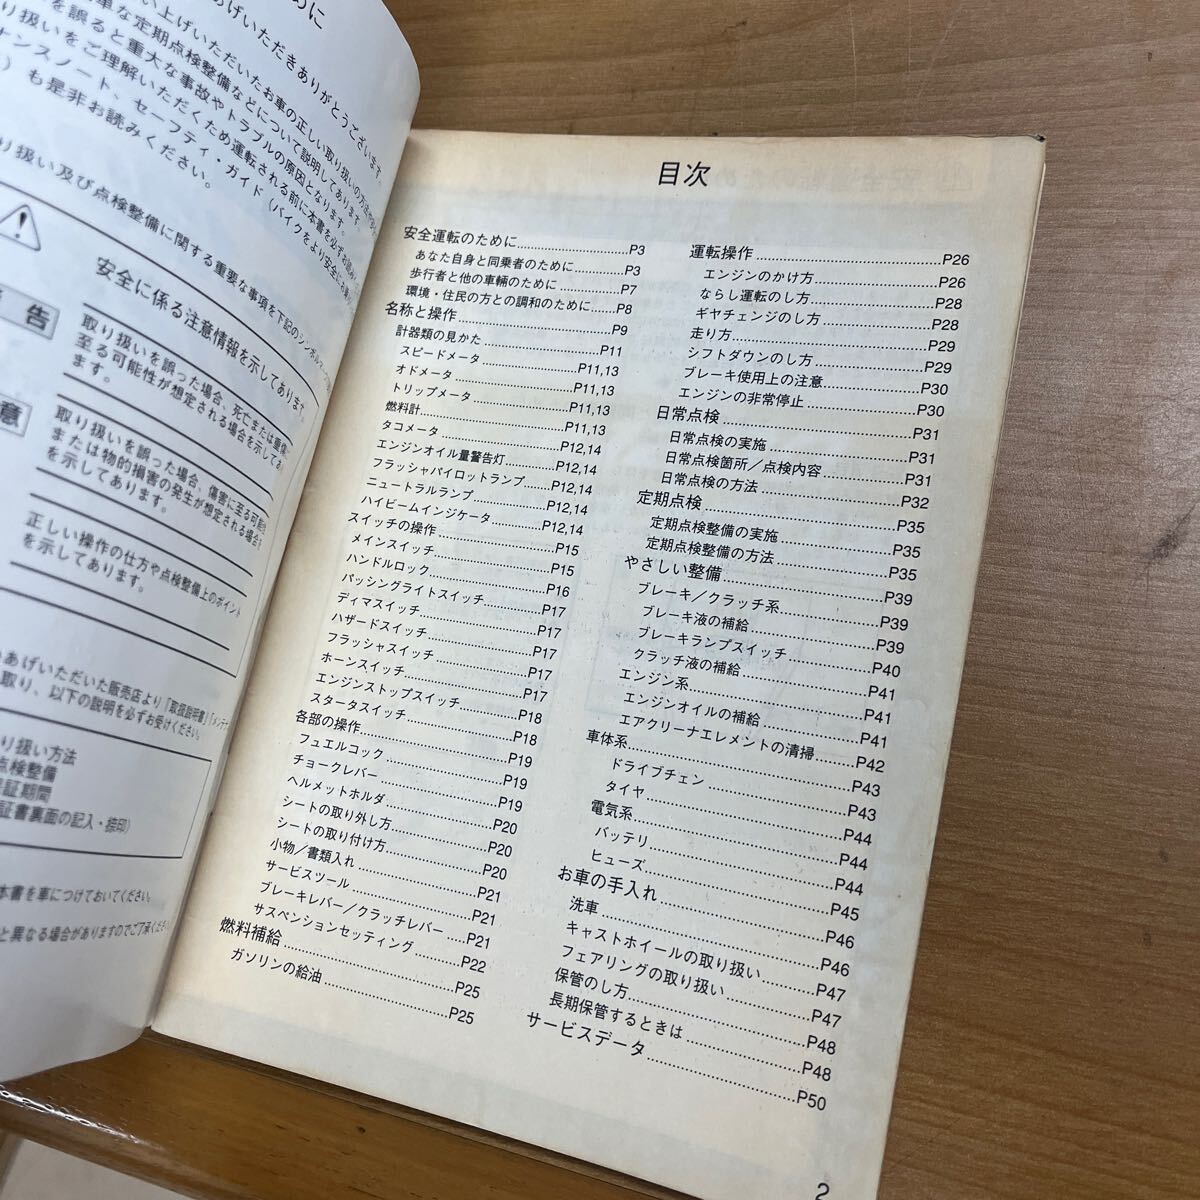 げいただきありがとうございます。
安全に係る注意情報を示してあります。
告
取り扱いを誤った場合、死亡または重傷に
至る可能性が想定される場合を示してあり
ます。
意
取り扱いを誤った場合、傷害に至る可能性
または物的損害の発生が想定される場合
を示してあります。
正しい操作の仕方や点検整備上のポイント
を示してあります。
あげいただいた販売店より「取扱説明書」「メンテ
取り、以下の説明を必ずお受けください。
り扱い方法
点検整備
証期間
証書裏面の記入・捺印)
本書を車につけておいてください。
と異なる場合がありますのでご了承ください
目次
安全運転のために P3
あなた自身と同乗者のために P3
歩行者と他の車輛のために P7
環境・住民の方との調和のために P8
名称と操作 P9
計器類の見かた P11
スピードメータ P11,13
オドメータ P11,13
トリップメータ P11,13
燃料計 P11,13
タコメータ P12,14
エンジンオイル量警告灯 P12,14
フラッシャパイロットランプ P12,14
ニュートラルランプ P12,14
ハイビームインジケータ P12,14
スイッチの操作 P15
メインスイッチ P15
ハンドルロック P16
パッシングライトスイッチ P17
ディマスイッチ P17
ハザードスイッチ P17
フラッシャスイッチ P17
ホーンスイッチ P17
エンジンストップスイッチ P18
スタータスイッチ P18
各部の操作 P19
フュエルコック P19
チョークレバー P19
ヘルメットホルダ P20
シートの取り外し方 P20
シートの取り付け方 P20
小物／書類入れ P21
サービスツール P21
ブレーキレバー／クラッチレバー P21
サスペンションセッティング P22
燃料補給 P25
ガソリンの給油 P25
運転操作 P26
エンジンのかけ方 P26
ならし運転のし方 P28
ギヤチェンジのし方 P28
走り方 P29
シフトダウンのし方 P29
ブレーキ使用上の注意 P30
エンジンの非常停止 P30
日常点検 P31
日常点検の実施 P31
日常点検箇所／点検内容 P31
日常点検の方法 P32
定期点検 P35
定期点検整備の実施 P35
定期点検整備の方法 P35
やさしい整備 P39
ブレーキ／クラッチ系 P39
ブレーキ液の補給 P39
ブレーキランプスイッチ P40
クラッチ液の補給 P41
エンジン系 P41
エンジンオイルの補給 P41
エアクリーナエレメントの清掃 P42
車体系 P43
ドライブチェン P43
タイヤ P44
電気系 P44
バッテリ P44
ヒューズ P45
お車の手入れ P46
洗車 P46
キャストホイールの取り扱い P47
フェアリングの取り扱い P47
保管のし方 P48
長期保管するときは P48
サービスデータ P50
2